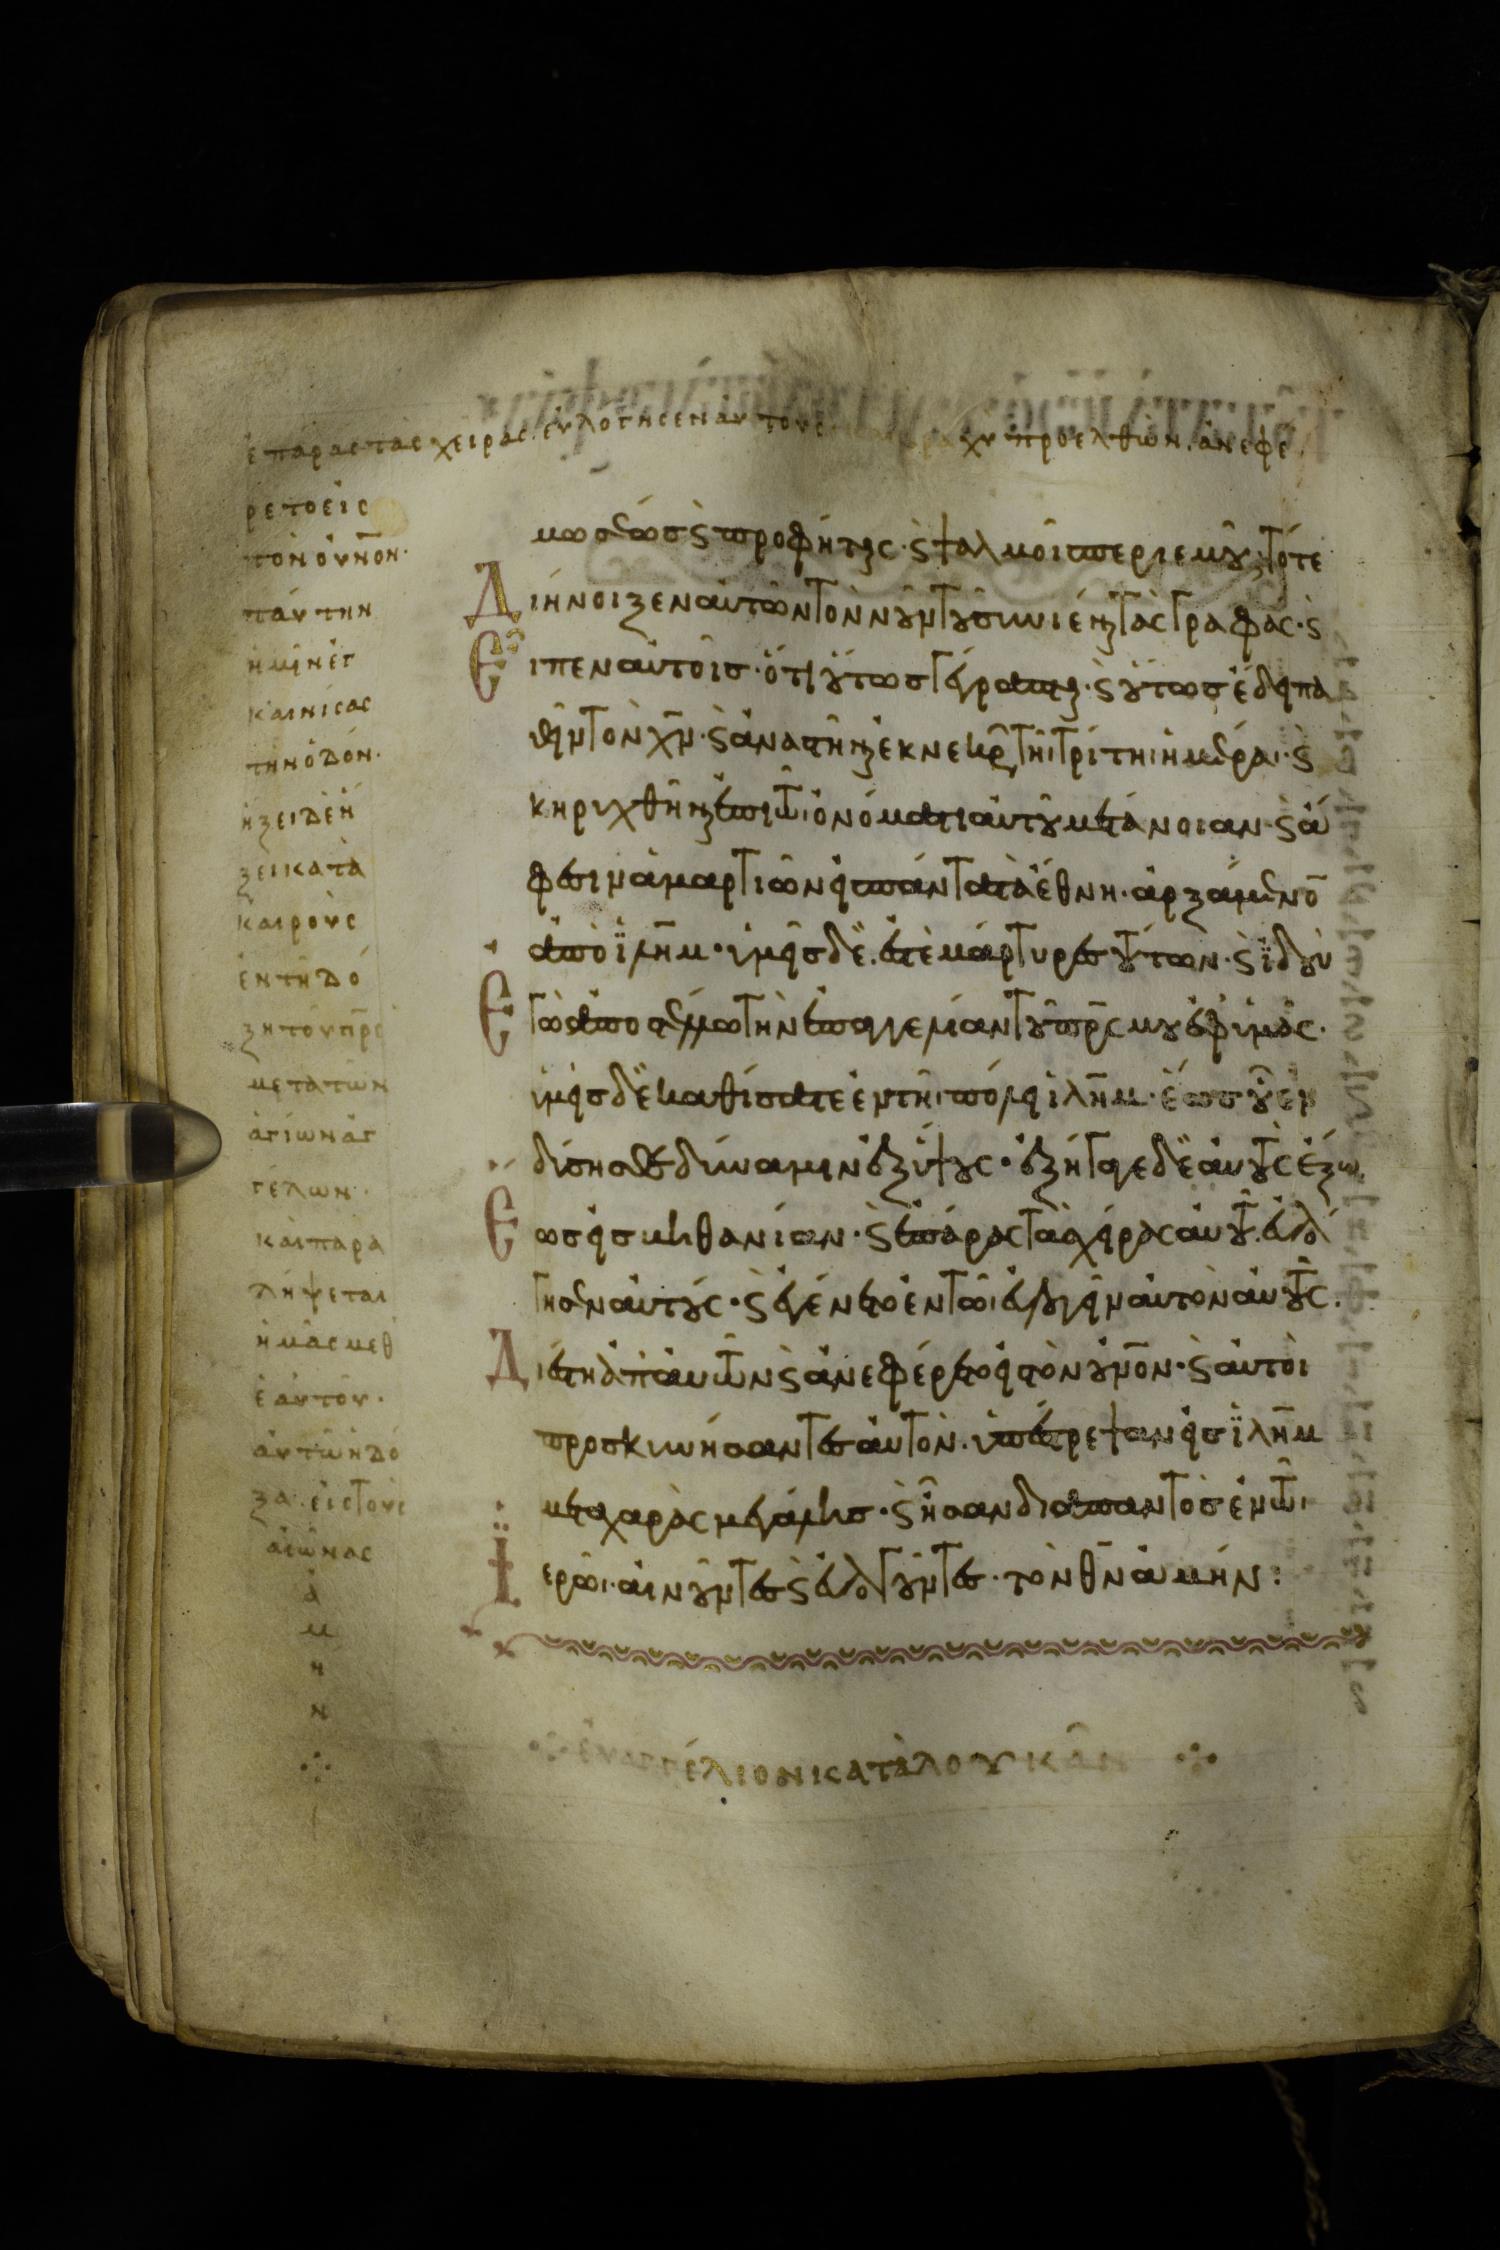 ἐπάρας τὰς χεῖρας. εὐλόγησεν αὐτούς
χυ προελθὼν. ἀνεφέ
ρετο εἰς
τὸν οὐνον·
πάντην
ἡμῖν ἐγ
καινίσας
τὴν ὁδόν·
ἥξει δὲ ἥ
ξει κατὰ
καιροὺς
ἐν τῇ δό
ξῃ τοῦ πρς
μετὰ τῶν
ἁγίων ἀγ
γέλων·
καὶ παρα
λήψεται
ἡμᾶς μεθ
ἑαυτοῦ·
αὐτῶ ἡ δό
ξα εἰς τοὺς
αἰώνας
ἀ
μ
η
ν
μωσέως ϛ προφήταις· ϛ ψαλμοῖς περὶ ἐμοῦ· τότε
Διήνοιξεν αὐτῶν τὸν νοῦν τοῦ συνιέναι τὰς γραφάς· ϛ
Εἶπεν αὐτοῖς· ὅτι οὕτως γέγραπται· ϛ οὕτως ἔδει πα
θεῖν τὸν χν· ϛ ἀναστῆναι ἐκ νεκρῶν τῆι τρίτηι ἡμέραι· ϛ
κηρυχθῆναι ἐπὶ τῶι ὀνόματι αὐτοῦ μετάνοιαν· ϛ ἄ
φεσιν ἁμαρτιῶν εἰς πάντα τὰ ἔθνη· ἀρξάμενον
ἀπὸ ϊλημ· ὑμεῖς δέ ἐστε μάρτυρες τούτων· ϛ ϊδοὺ
Ἐγὼ ἀποστέλλω τὴν ἐπαγγελίαν τοῦ πρς μου ἐφ ὑμᾶς·
ὑμεῖς δὲ καθίσατε ἐν τῆι πόλει ιλημ· ἕως οὗ ἐν
δύσησθε δύναμιν ἐξ ὕψους· ἐξήγαγε δὲ αὐτοὺς ἔξω
Ἕως εἰς βηθανίαν· ϛ ἐπάρας τὰς χεῖρας αὐτοῦ. εὐλό
γησεν αὐτούς· ϛ ἐγένετο ἐν τῶι εὐλογεῖν αὐτὸν αὐτοὺς.
Διέστη ἀπ αὐτῶν ϛ ἀνεφέρετο εἰς τὸν οὐνον· ϛ αὐτοὶ
προσκυνήσαντες αὐτὸν. ὑπέστρεψαν εἰς ϊλημ
μετὰ χαρᾶς μεγάλης· ϛ ἦσαν διαπαντὸς ἐν τῶι
Ϊερῶι· αἰνοῦντες ϛ εὐλογοῦντες· τὸν θν ἀμήν:
εὐαγγέλιον κατὰ λουκᾶν